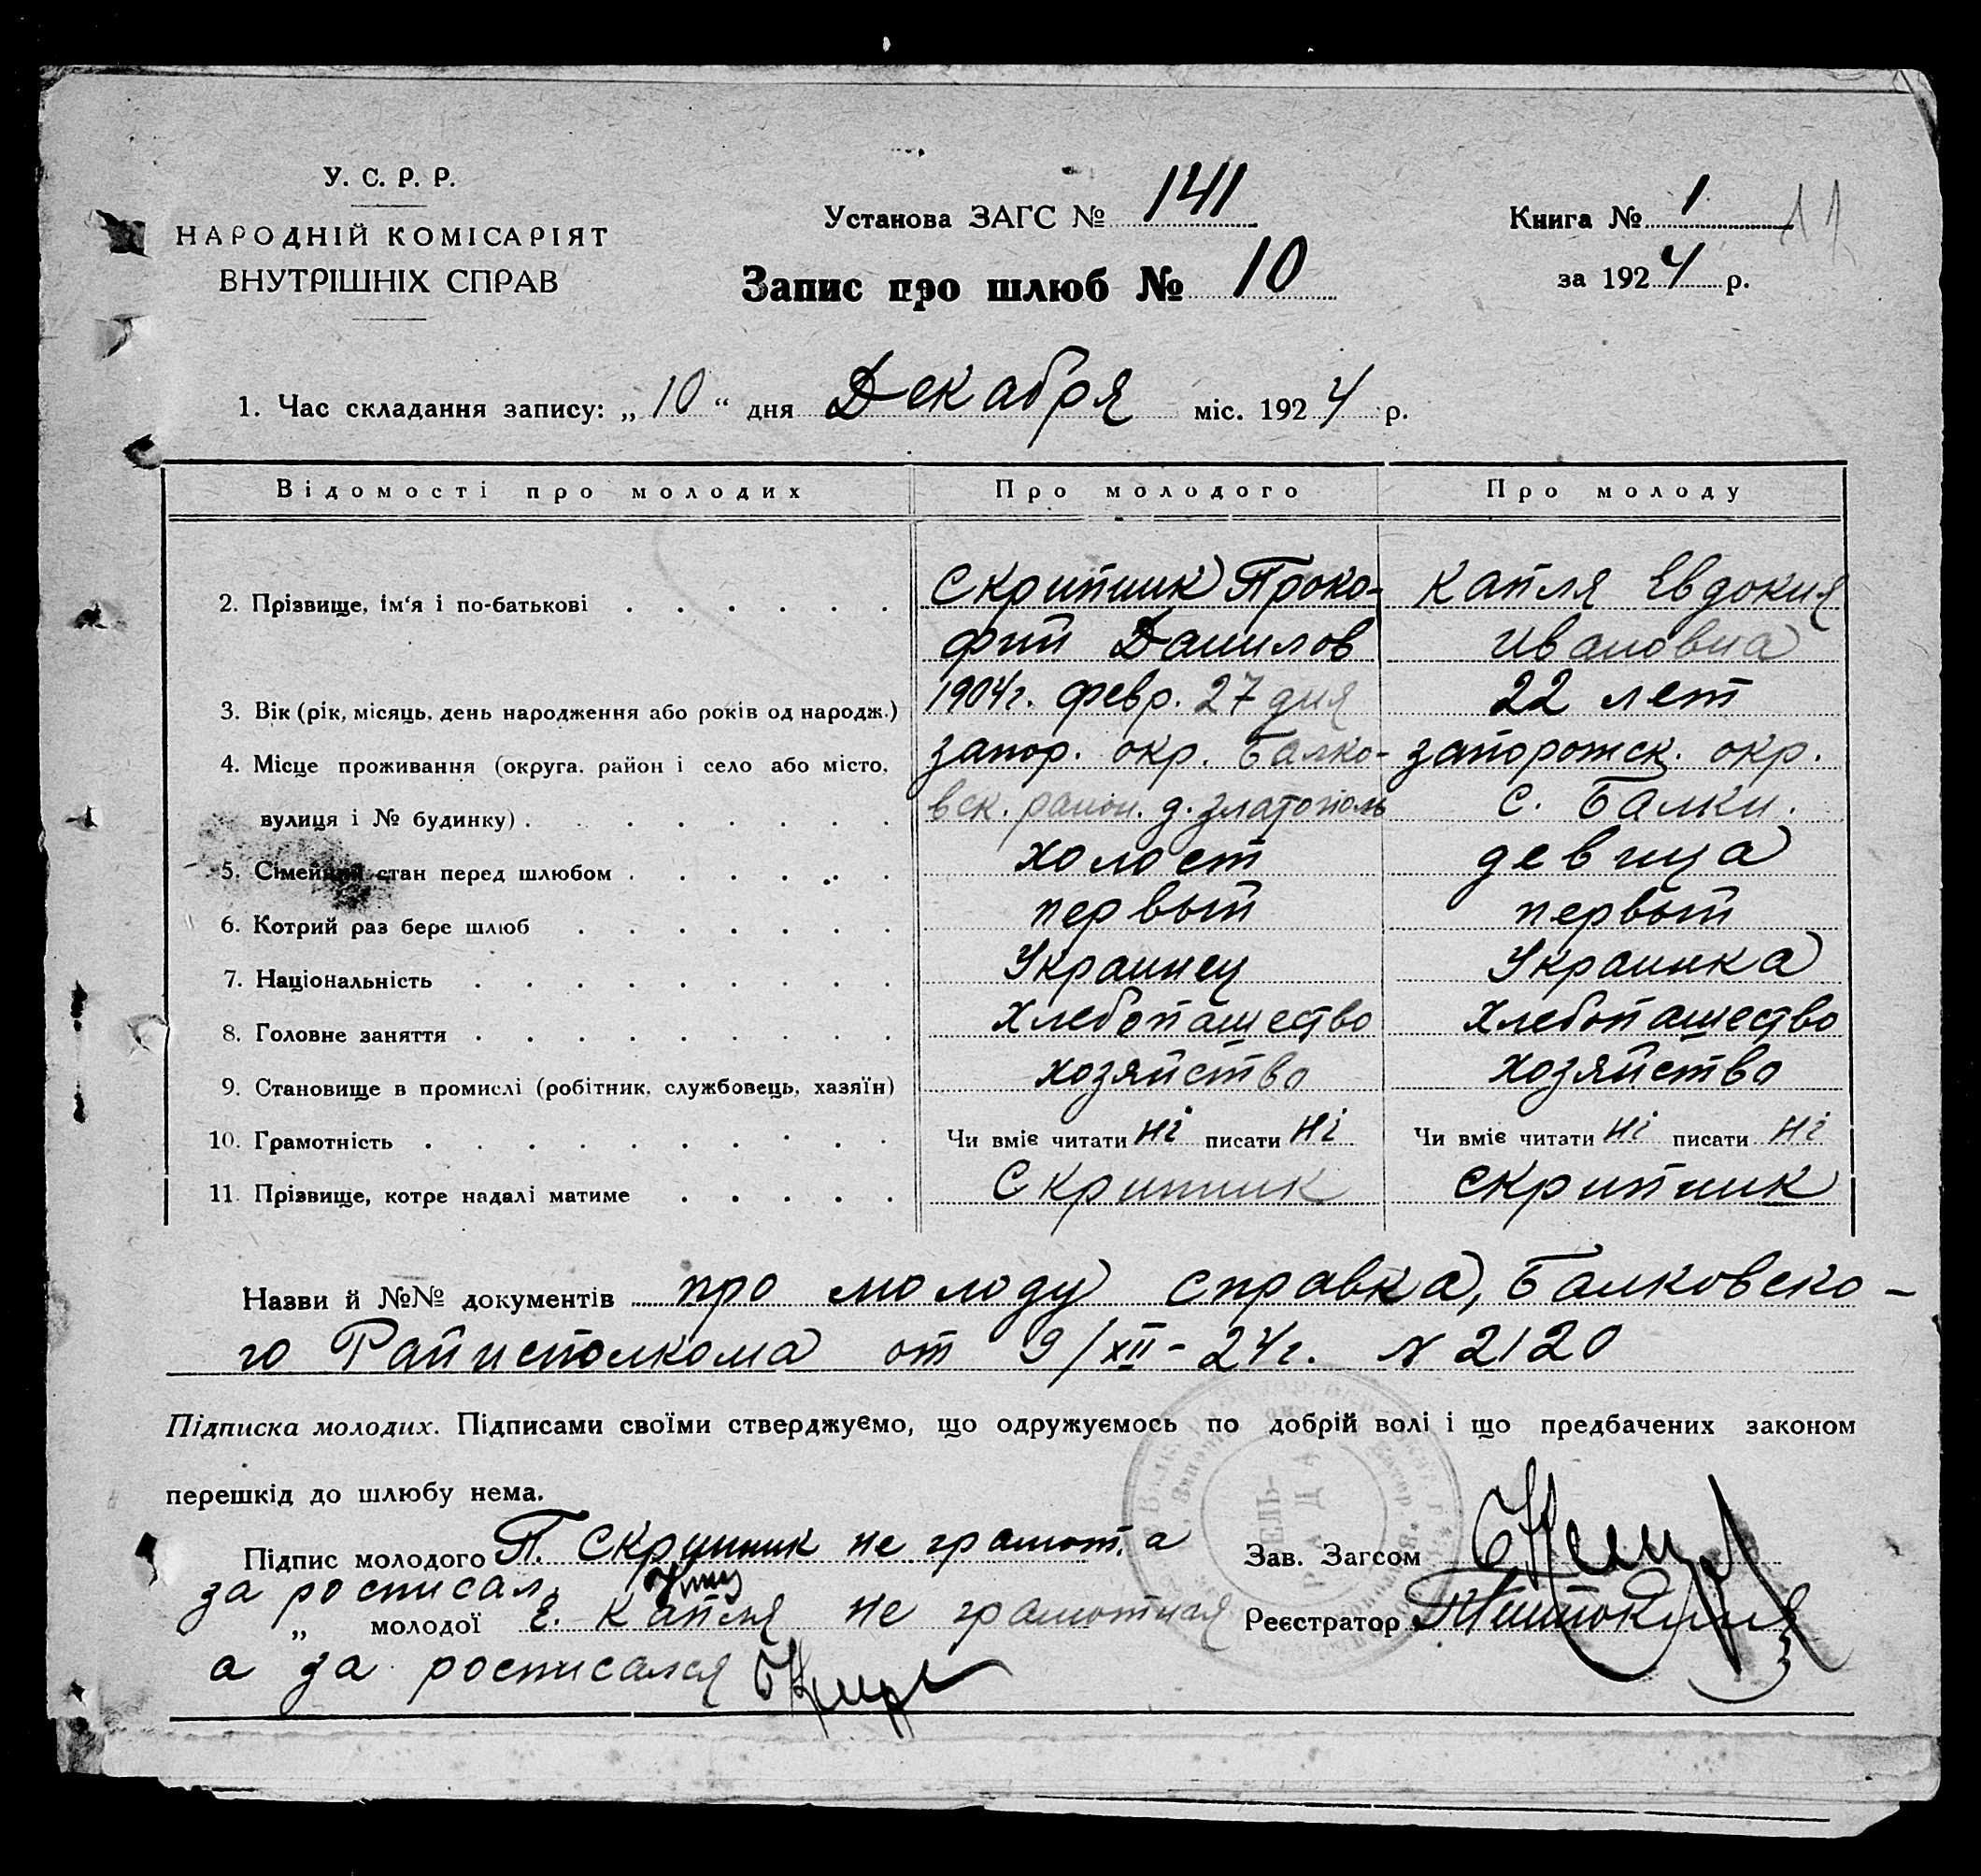 У. С. Р. Р.
НАРОДНІЙ КОМІСАРІЯТ
ВНУТРІШНІХ СПРАВ
Установа ЗАГС № 141
Запис про шлюб № 10
Книга № 1
11
за 1924 р.
1. Час складання запису: „10“ дня Декабря міс. 1924 р.
Відомості про молодих Про молодого Про молоду
2. Прізвище, ім‘я і по-батькові Скрипник Проко- Капля Евдокия
фий Данилов Ивановна
3. Вік (рік, місяць, день народження або років од народж.) 1904г. февр. 27 дня 22 лет
4. Місце проживання (округа, район і село або місто, запор. окр. Балко- запорожск. окр.
вулиця і № будинку) вск. район. д. златополь с. Балки.
5. Сімейний стан перед шлюбом холост девица
6. Котрий раз бере шлюб первый первый
7. Національність Украинец Украинка
8. Головне заняття хлебопашество хлебопашество
9. Становище в промислі (робітник, службовець, хазяїн) хозяйство хозяйство
10. Грамотність Чи вміє читати ні писати ні Чи вміє читати ні писати ні
11. Прізвище, котре надалі матиме Скрипник скрипник
Назви й №№ документів про молоду справка, Балковско-
го Райисполкома от 9/XII-24г. № 2120
Підписка молодих. Підписами своїми стверджуємо, що одружуємось по добрій волі і що предбачених законом
перешкід до шлюбу нема.
Підпис молодого П. Скрипник не грамот. а
Зав. Загсом
за росписал.
„ молодої Е. Капля не грамотная
Реєстратор
а за росписался
РАДА